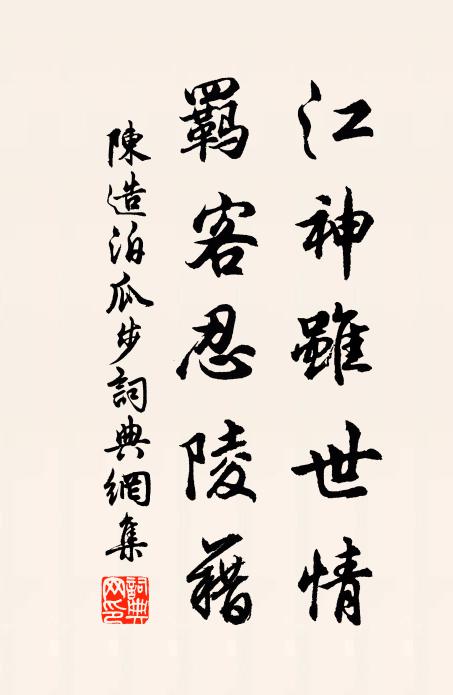 江神雖世情
羈客忍陵藉
陳造泊瓜步詞典網集
詞典網印